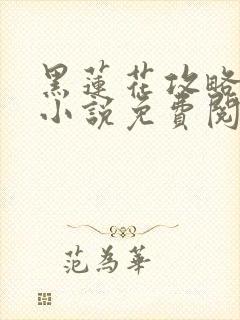 黑蓮花攻略
小說免費閱
范為華